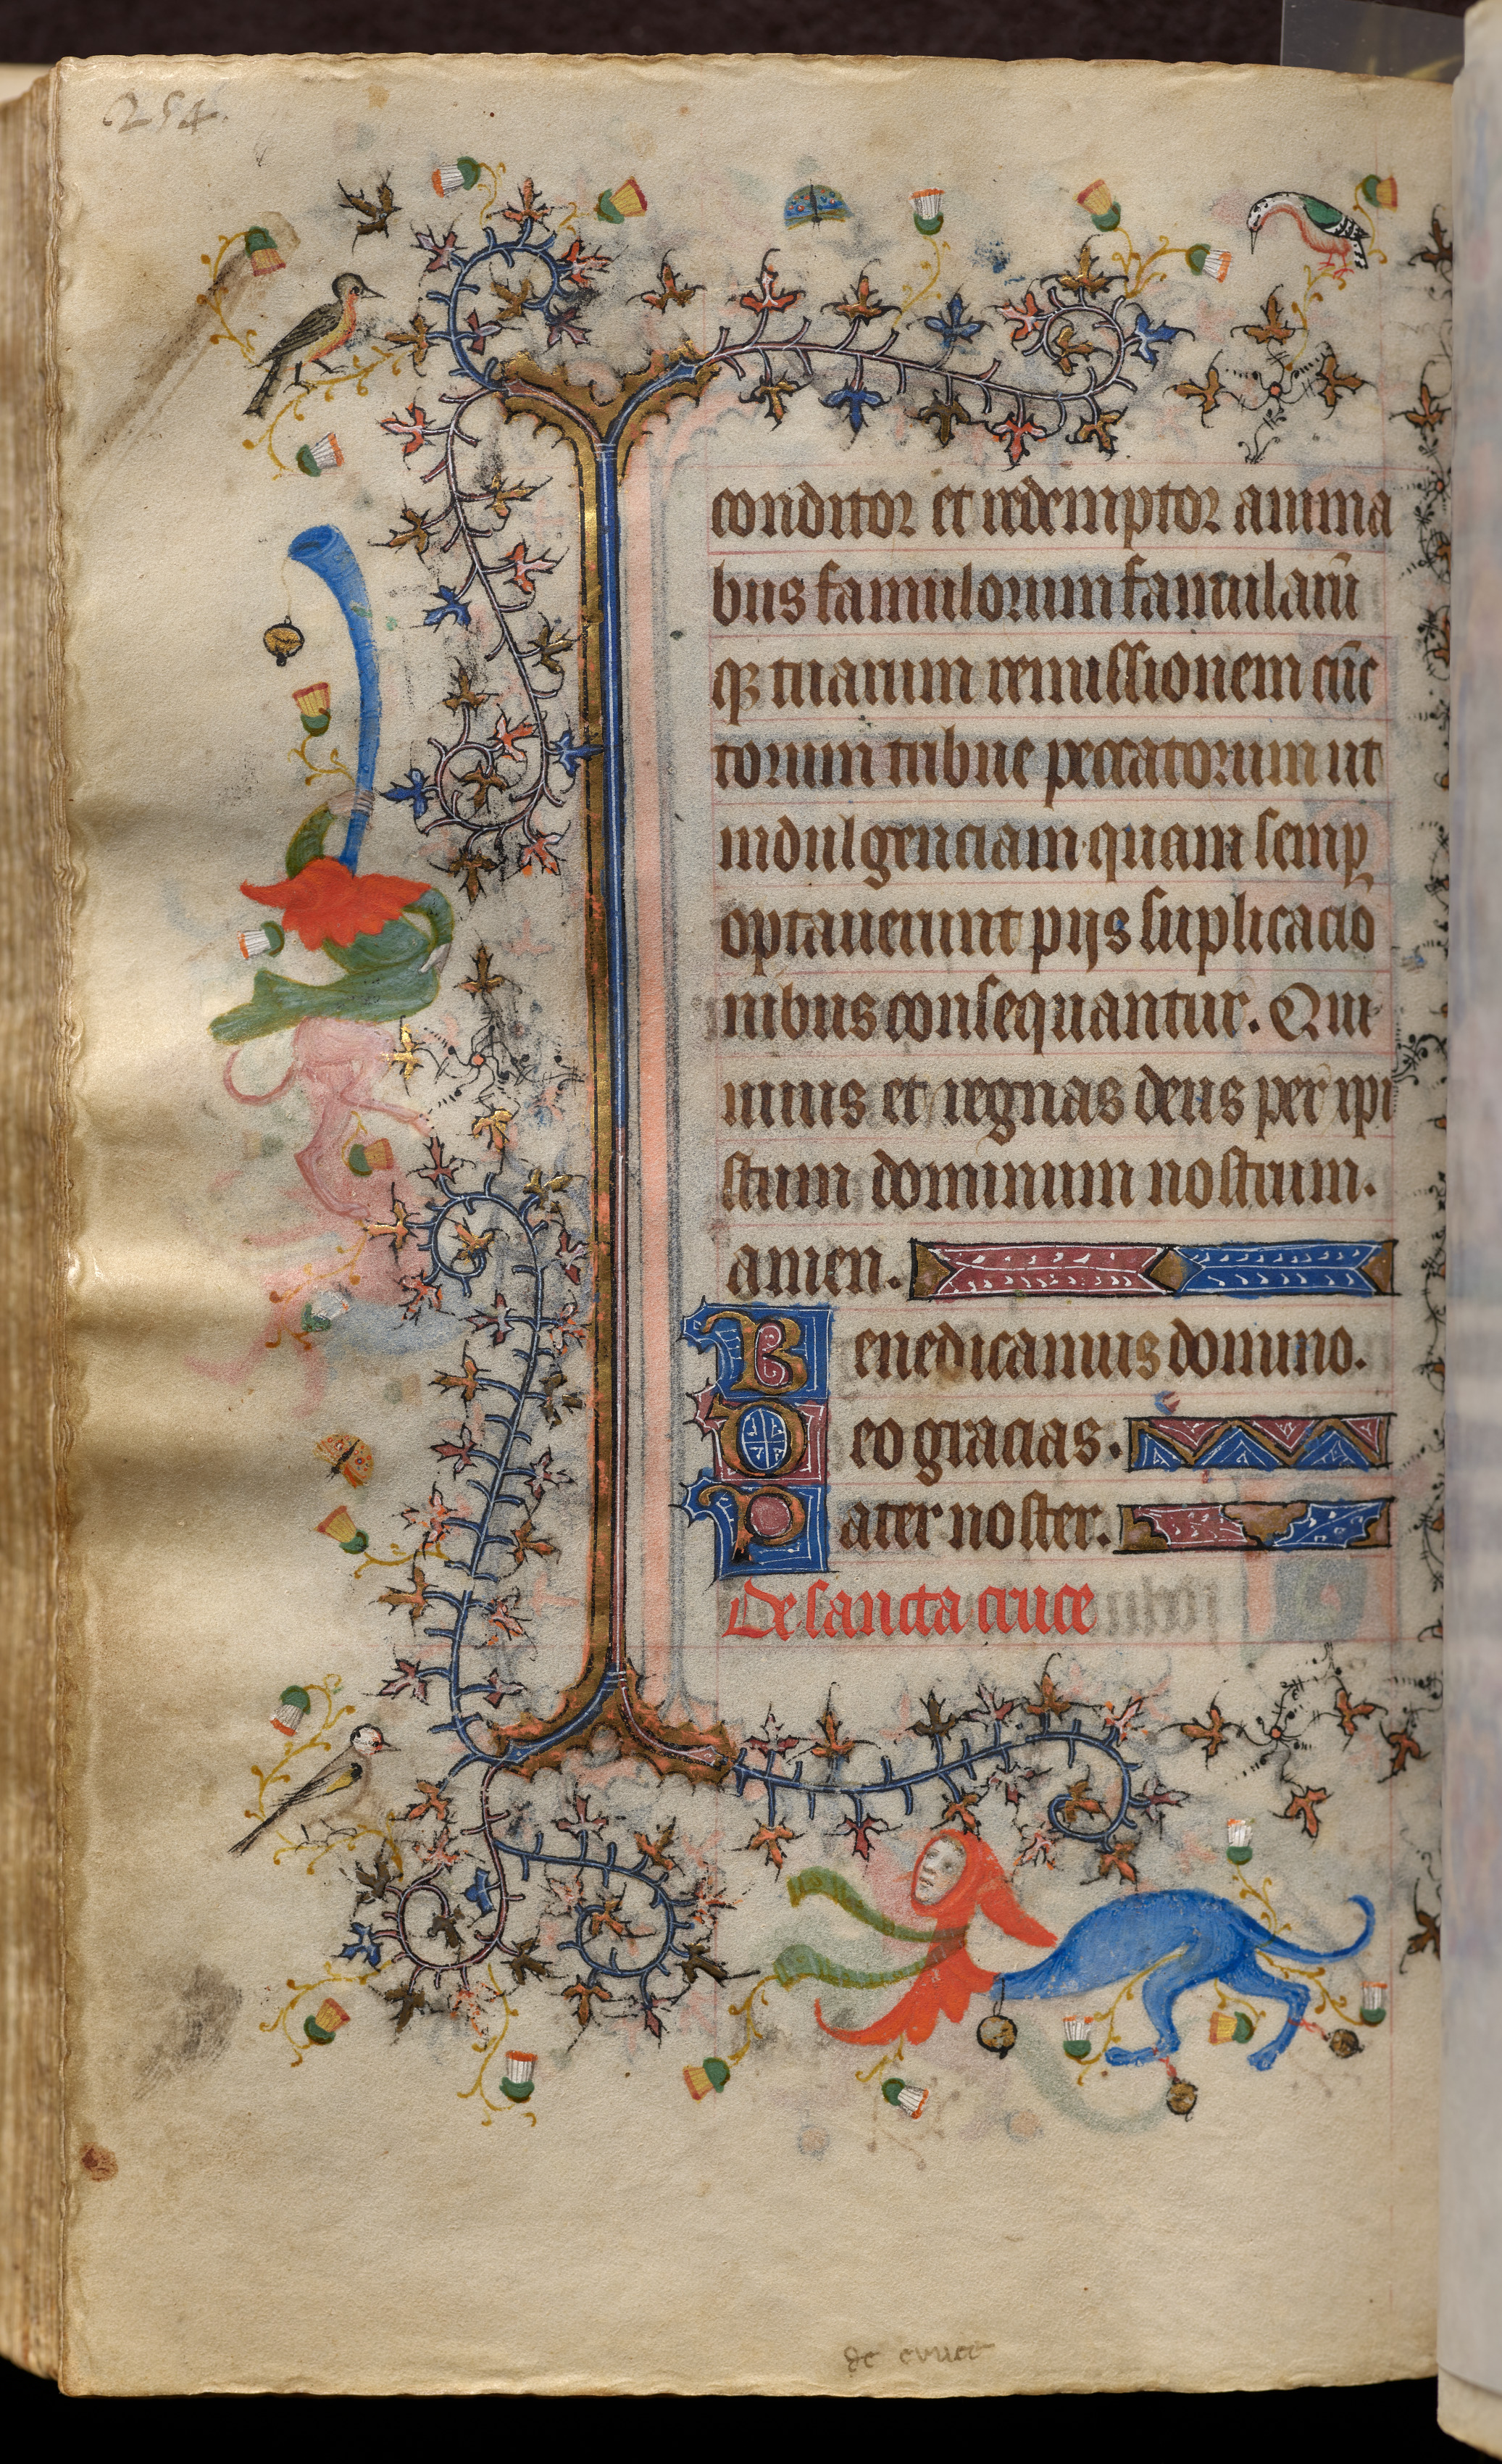 254.
conditor et redemptor anima
bus famulorum famularū
qꝫ tuarum remissionem cūc
torum tribue peccatorum ut
indulgenciam quam semꝑ
optauerunt pijs suplicacio
nibus consequantur. Qui
uiuis et regnas deus per xpi
stum dominum nostrum.
amen.
Benedicamus domino.
Deo gracias.
Pater noster.
De sancta cruce
de cruce